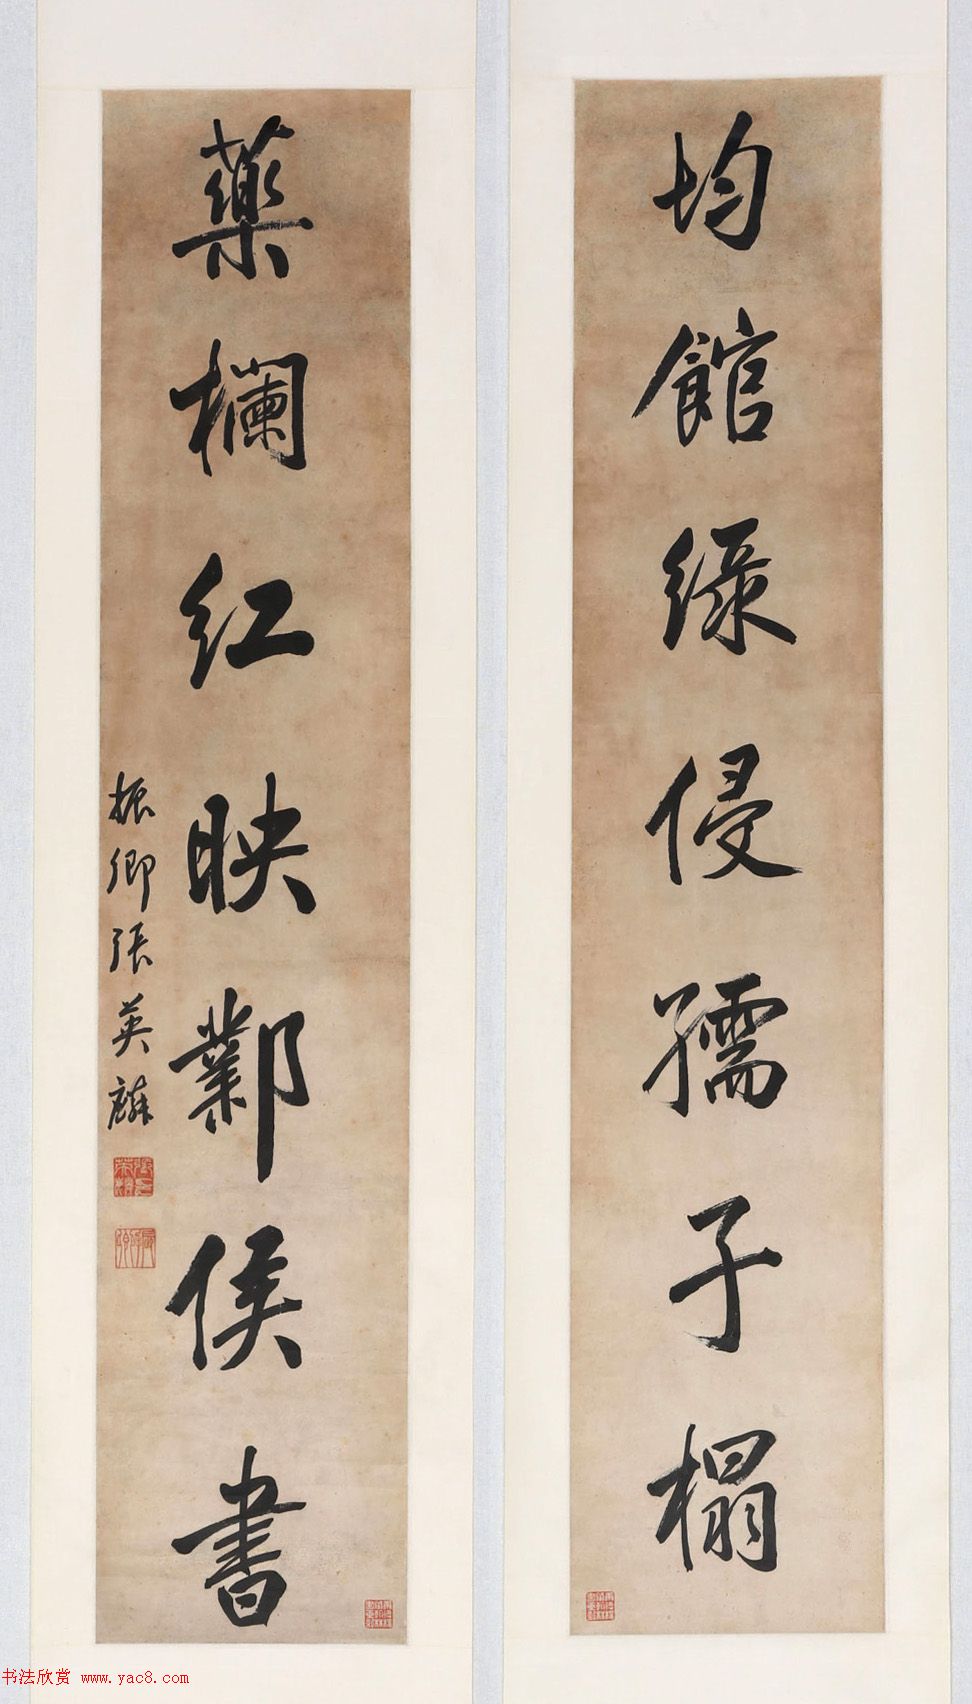 均館綠侵孺子榻
藥欄红映鄴侯書
振卿張英麟
书法欣赏 www.yac8.com